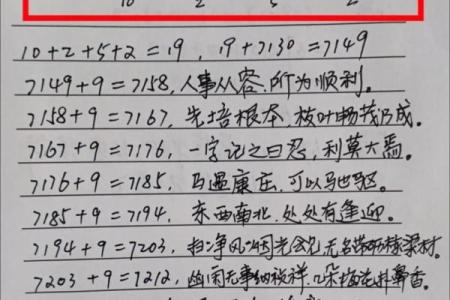 10 2 5 2
10+2+5+2=19, 19+7130=7149
7149+9=7158,人事从容,所为顺利。
7158+9=7167,先培根本,枝叶畅茂乃成。
7167+9=7176,一字记之曰忍,利莫大焉。
7176+9=7185,马遇康庄,可以驰驱。
7185+9=7194,东西南北,处处有逢迎。
7194+9=7203,扫净风烟光会见无名带
7203+9=7212,幽闲无事纳祯祥,几朵梅花扑鼻香。